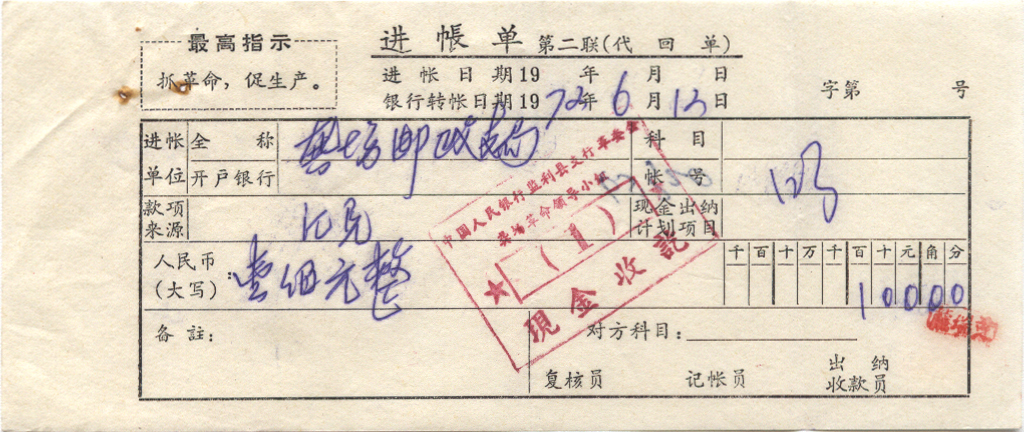 最高指示
抓革命，促生产。
进帐单 第二联(代回单)
进帐日期19 年 月 日
银行转帐日期1972年6月13日
字第 号
进帐单位 全称 邮政局 科目
开户银行 帐号
款项来源 现金出纳计划项目
人民币(大写)： 壹佰元整 千百十万千百十元角分
10000
中国人民银行监利县支行革委会
革命领导小组
(1)
★
现金收讫
备註： 对方科目：
复核员 记帐员 出纳收款员